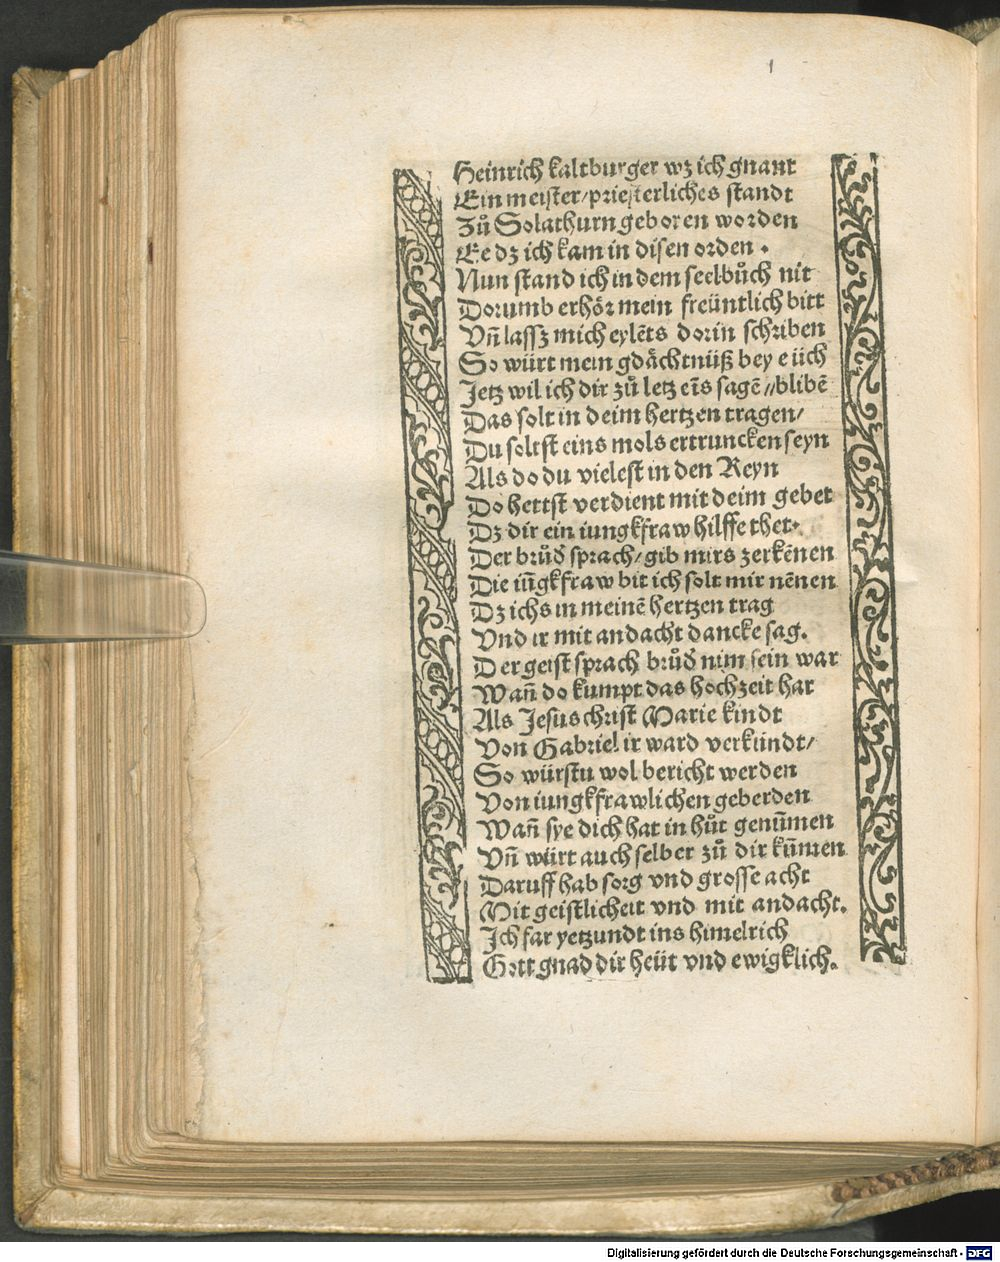 1
Heinrich kaltburger wz ich gnant
Ein meister/priesterliches standt
Zů Solathurn geboren worden
Ee dz ich kam in disen orden.
Nun stand ich in dem seelbůch nit
Dorumb erhör mein freüntlich bitt
Vñ lassz mich eylēts dorin schriben
So würt mein gdächtnüß bey eüch
Jetz wil ich dir zů letz eīs sagē//blibē
Das solt in deim hertzen tragen/
Du soltst eins mols ertruncken seyn
Als do du vielest in den Reyn
Do hettst verdient mit deim gebet
Dz dir ein iungkfraw hilffe thet.
Der brůd̃ sprach/gib mirs zerkēnen
Die iūgkfraw bit ich solt mir nēnen
Dz ichs in meinē hertzen trag
Vnd ir mit andacht dancke sag.
Der geist sprach brůd̃ nim sein war
Wañ do kumpt das hochzeit har
Als Jesus christ Marie kindt
Von Gabriel ir ward verkündt/
So würstu wol bericht werden
Von iungkfrawlichen geberden
Wañ sye dich hat in hůt genūmen
Vñ würt auch selber zů dir kūmen
Daruff hab sorg vnd grosse acht
Mit geistlicheit vnd mit andacht.
Ich far yetzundt ins himelrich
Gott gnad dir heüt vnd ewigklich.
Digitalisierung gefördert durch die Deutsche Forschungsgemeinschaft - DFG